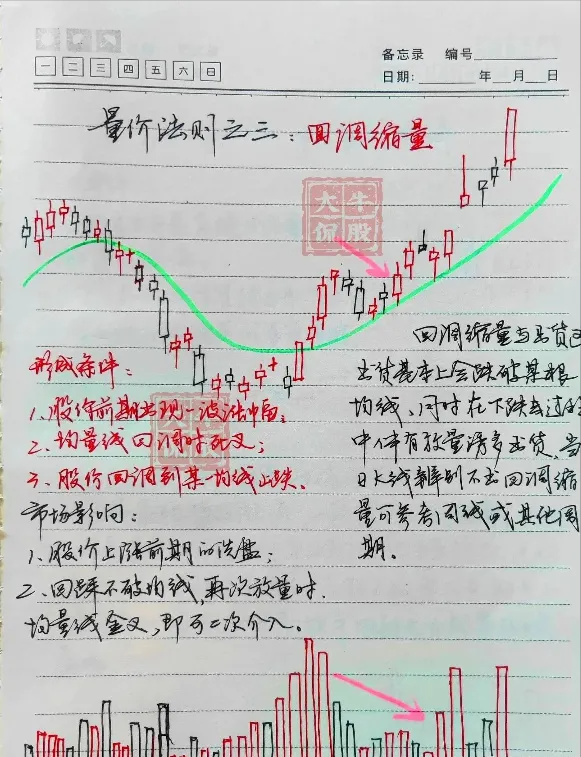 备忘录 编号
一 二 三 四 五 六 日
日期: 年 月 日
量价法则之三:回调缩量
大牛
侃股
回调缩量与出货区
形成条件:
出货基本上会跌破某根
1、股价前期出现一波涨幅;
均线,同时在下跌去过的
2、均量线回调时死叉;
中伴有放量诱多出货,当
3、股价回调到某一均线止跌。
日K线辨别不出回调缩
市场影响:
量可参考周线或其他周
1、股价上涨前期的洗盘;
期。
2、回踩不破均线,再次放量时.
均量线金叉,即可二次介入。